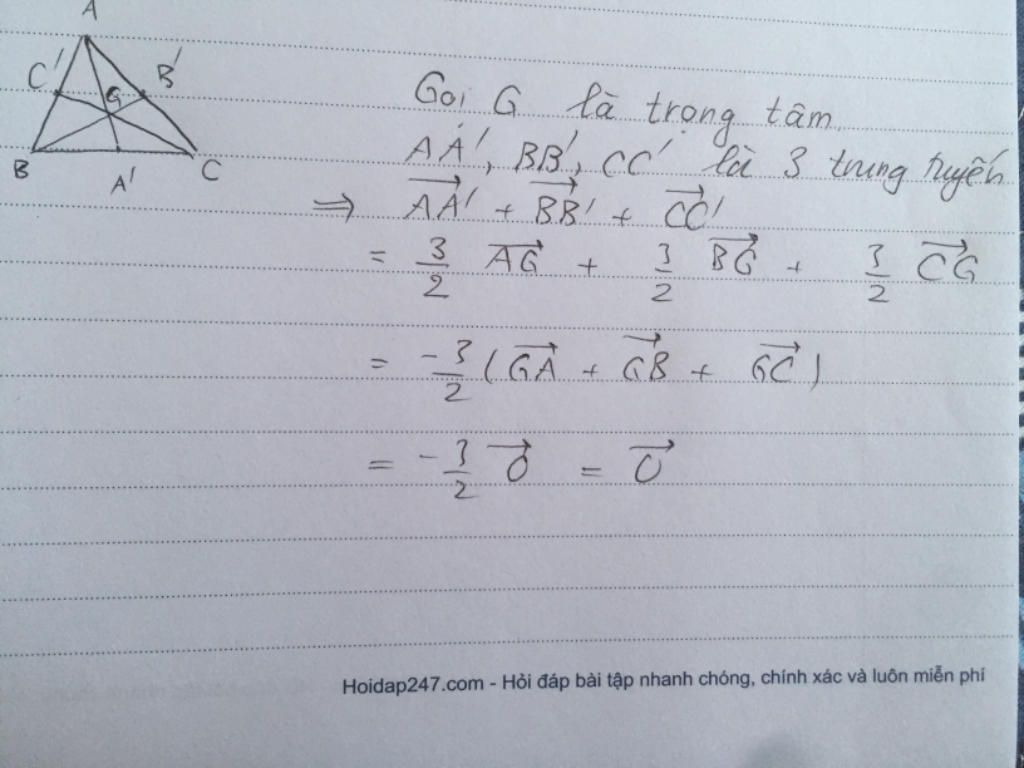 A
C' B'
G
B A' C
Gọi G là trọng tâm
AA', BB', CC' là 3 trung tuyến
⇒ \overrightarrow{AA'} + \overrightarrow{BB'} + \overrightarrow{CC'}
= \frac{3}{2} \overrightarrow{AG} + \frac{3}{2} \overrightarrow{BG} + \frac{3}{2} \overrightarrow{CG}
= \frac{-3}{2} ( \overrightarrow{GA} + \overrightarrow{GB} + \overrightarrow{GC} )
= \frac{-3}{2} \overrightarrow{O} = \overrightarrow{O}
Hoidap247.com - Hỏi đáp bài tập nhanh chóng, chính xác và luôn miễn phí